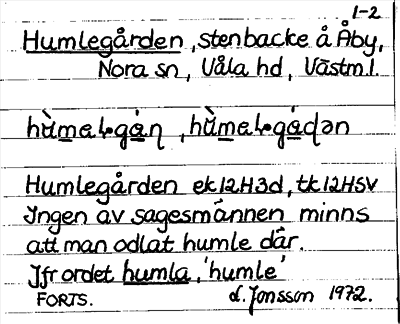 1-2
Humlegården, stenbacke å Åby,
Nora sn, Våla hd, Västml.
Humlegården ek 12H3d, tk 12HSV
Ingen av sagesmännen minns
att man odlat humle där.
Jfr ordet humla, 'humle'
FORTS. L. Jonsson 1972.